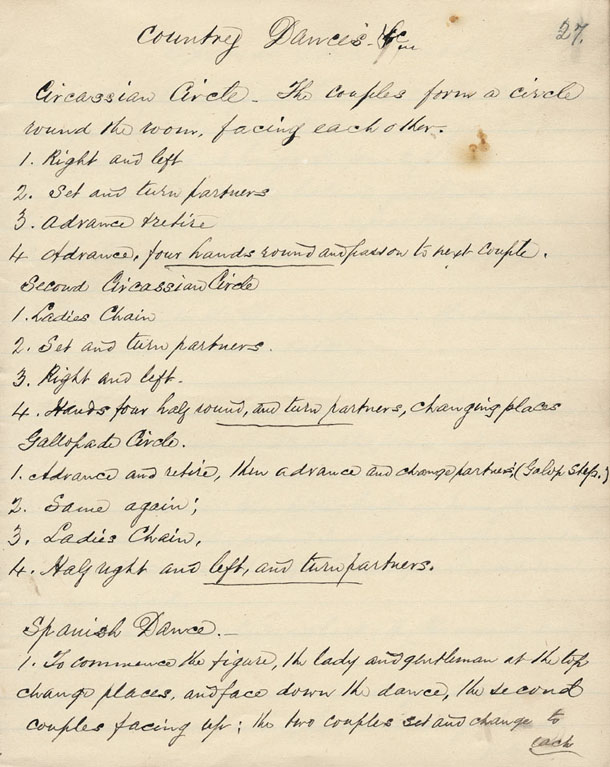 Country Dances. &c
27.
Circassian Circle - The couples form a circle
round the room, facing each other.
1. Right and left
2. Set and turn partners
3. Advance & retire
4 Advance, four hands round and pass on to next couple.
Second Circassian Circle
1. Ladies Chain
2. Set and turn partners.
3. Right and left.
4. Hands four half round, and turn partners, changing places
Gallopade Circle.
1. Advance and retire, then advance and change partners, (Galop Step.)
2. Same again;
3. Ladies Chain,
4. Half right and left, and turn partners.
Spanish Dance. -
1. To commence the figure, the lady and gentleman at the top
change places, and face down the dance, the second
couples facing up; the two couples set and change to
each